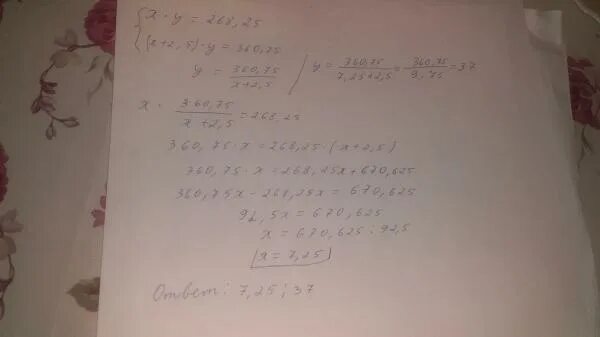 { x · y = 268,25
(x+2,5) · y = 360,75
y = 360,75 / x+2,5 / y = 360,75 / 7,25+2,5 = 360,75 / 9,75 = 37
x · 360,75 / x+2,5 = 268,25
360,75 · x = 268,25 · (x+2,5)
360,75 · x = 268,25x + 670,625
360,75x - 268,25x = 670,625
92,5x = 670,625
x = 670,625 : 92,5
x = 7,25
Ответ: 7,25 ; 37